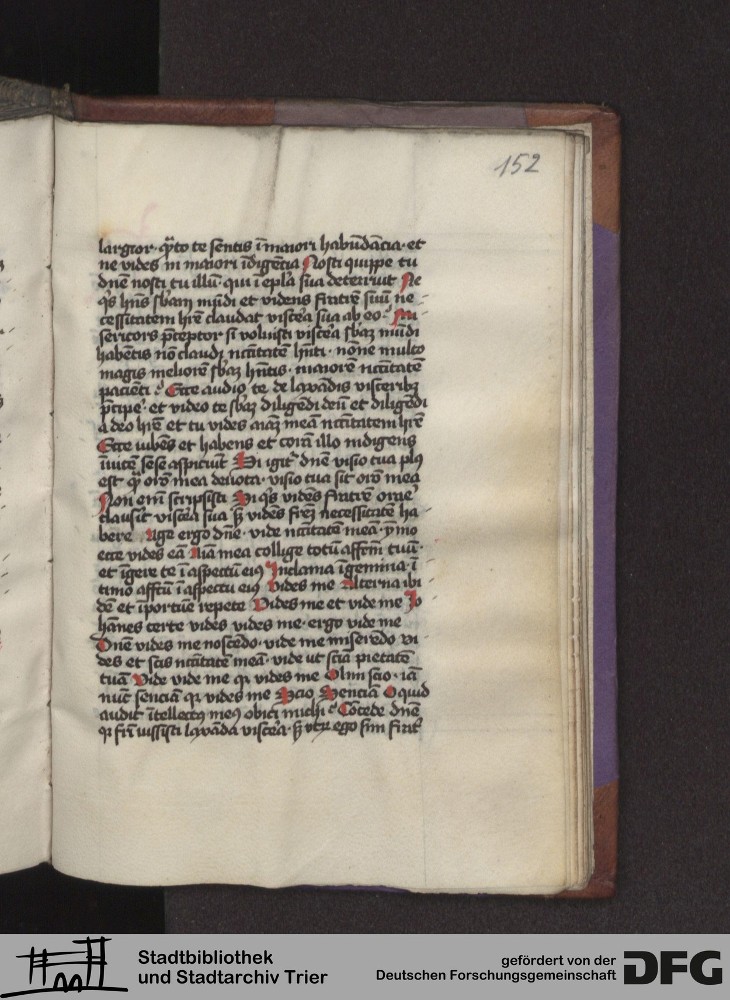 152
largior · qͣto te sentis ī maiori habūdācia · et
ne vides in maiori īdigētia Nosti quippe tu
dn̄e nosti tu illū · qui ī epl̄a sua deterruit Ne
q̄s hn̄s sbām mūdi et videns fratrē suū ne
cessitatem hr̄e claudat viscēa sua ab eo · Mi
sericors p̄ceptor si voluisti viscēa sbāꝫ mūdi
habētis nō claudi nc̄citatē hn̄ti · nōne multo
magis meliorē sbāꝫ hn̄tis · maiorē nc̄citatē
pacienti · Ecce audio te de lavādis visceribꝫ
p̄cipe · et video te sbāꝫ diligēdi deū et diligēdi
a deo hr̄e et tu vides aīaꝫ meā nc̄citatem hr̄e
Ecce iubēs et habens et corā illo indigens
īuicē sese aspiciūt Si igit᷑ dn̄e visio tua plꝰ
est qͣ orō mea deuota · visio tua sit orō mea
Non em̄ scripsisti Si q̄s vides fratrē orare
clausit viscēa sua sꝫ vidēs frēꝫ necessitatē ha
bere Age ergo dn̄e · vide nc̄citatē meā · ymo
ecce vides eā Aīa mea collige totū affc̄m tuū ·
et īgere te ī aspectū eiꝰ Inclama īgemina · ī
timo affc̄tū ī aspectu eiꝰ Vides me Alterna ibi
dē et īportūe repete Vides me et vide me Jo
hānes certe vides vides me · ergo vide me
Dn̄e vides me noscēdo · vide me miserēdo vi
des et scis nc̄citatē meā · vide ut sciā pietatē
tuā Vide vide me qꝛ vides me Olim scio · iā
nūc senciā qꝛ vides me Scio Senciā O quid
audit ītellectꝰ meꝰ obici michi Cōcede dn̄e
qꝛ fr̄i iussisti lavāda viscēa · sꝫ ego sim frat᷑
Stadtbibliothek
und Stadtarchiv Trier
gefördert von der
Deutschen Forschungsgemeinschaft
DFG